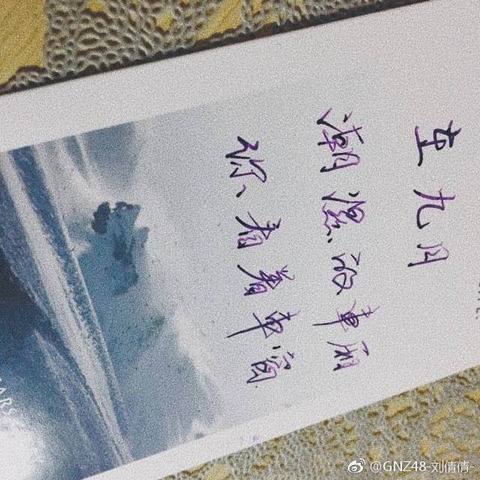 在九月
潮湿的車厢
你看着車窗
@GNZ48-刘倩倩-